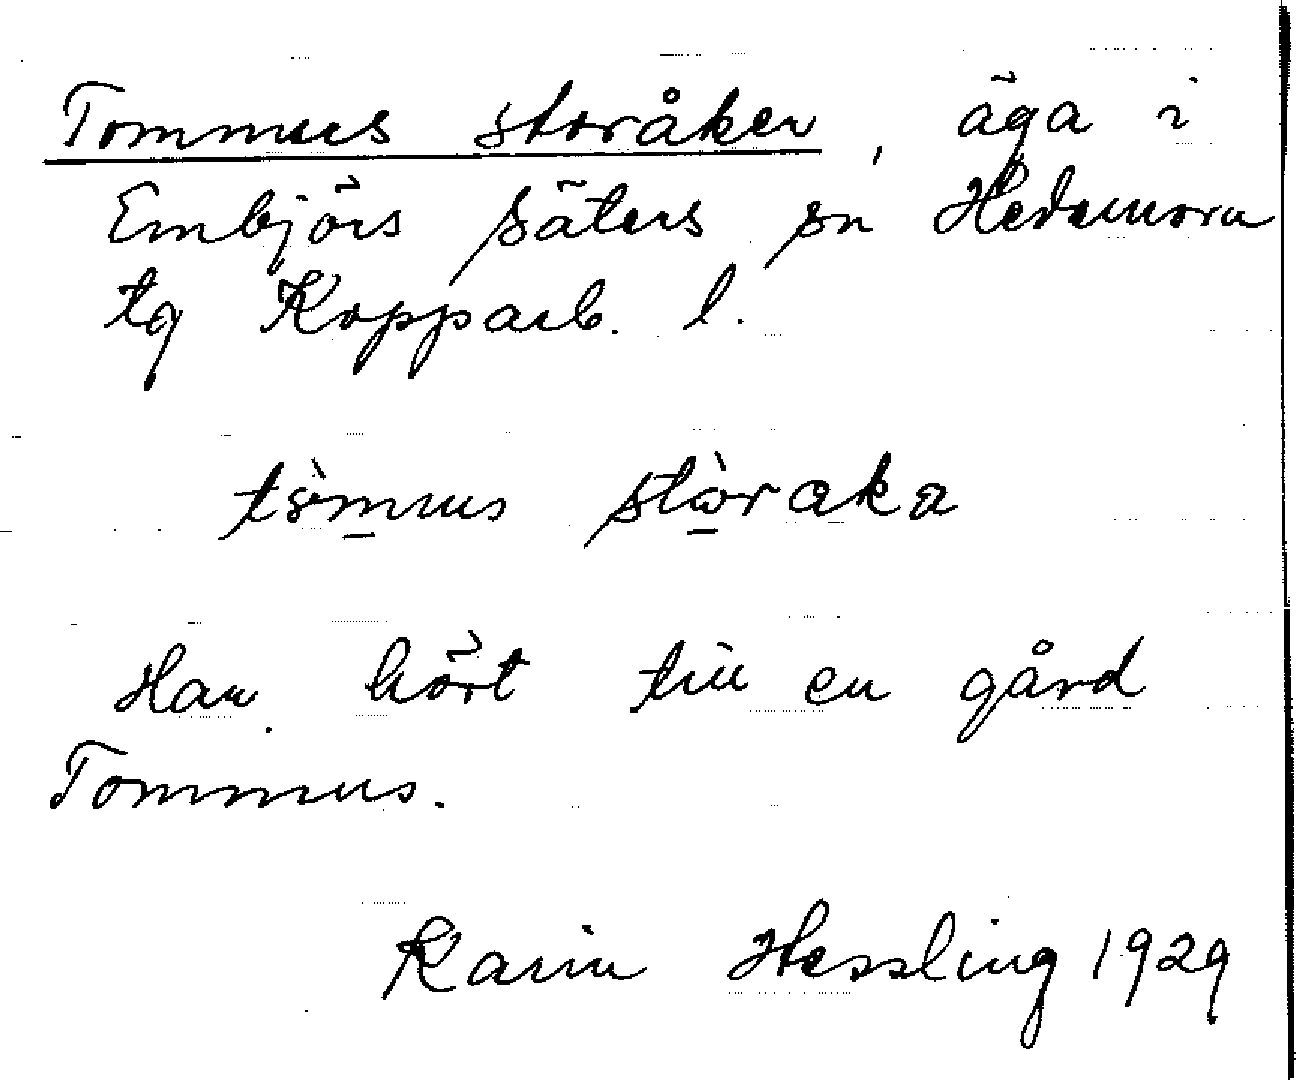 Tommus storåker, äga i
Embjörs Säters sn Hedemora
tg Kopparb. l.
tòmus stòraka
Har hört till en gård
Tommus.
Karin Hessling 1929